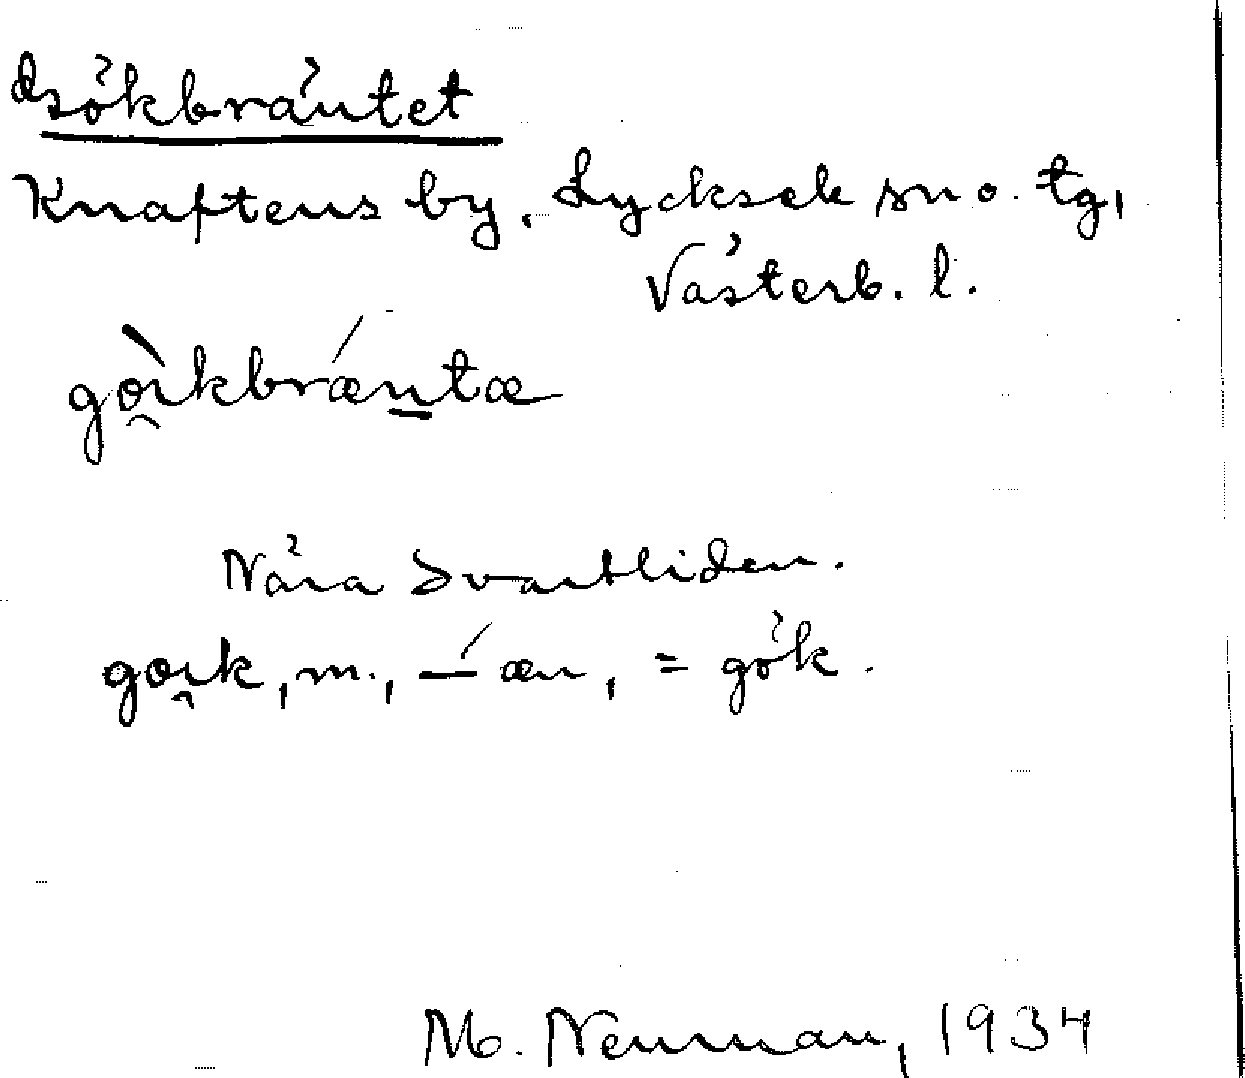 Gökbräntet
Knaftens by, Lycksele sn o. tg,
Västerb. l.
gòɪkbrǽntæ
Nära Svartliden.
gɶɪk, m., –́ æn, = gök.
M. Neuman, 1934